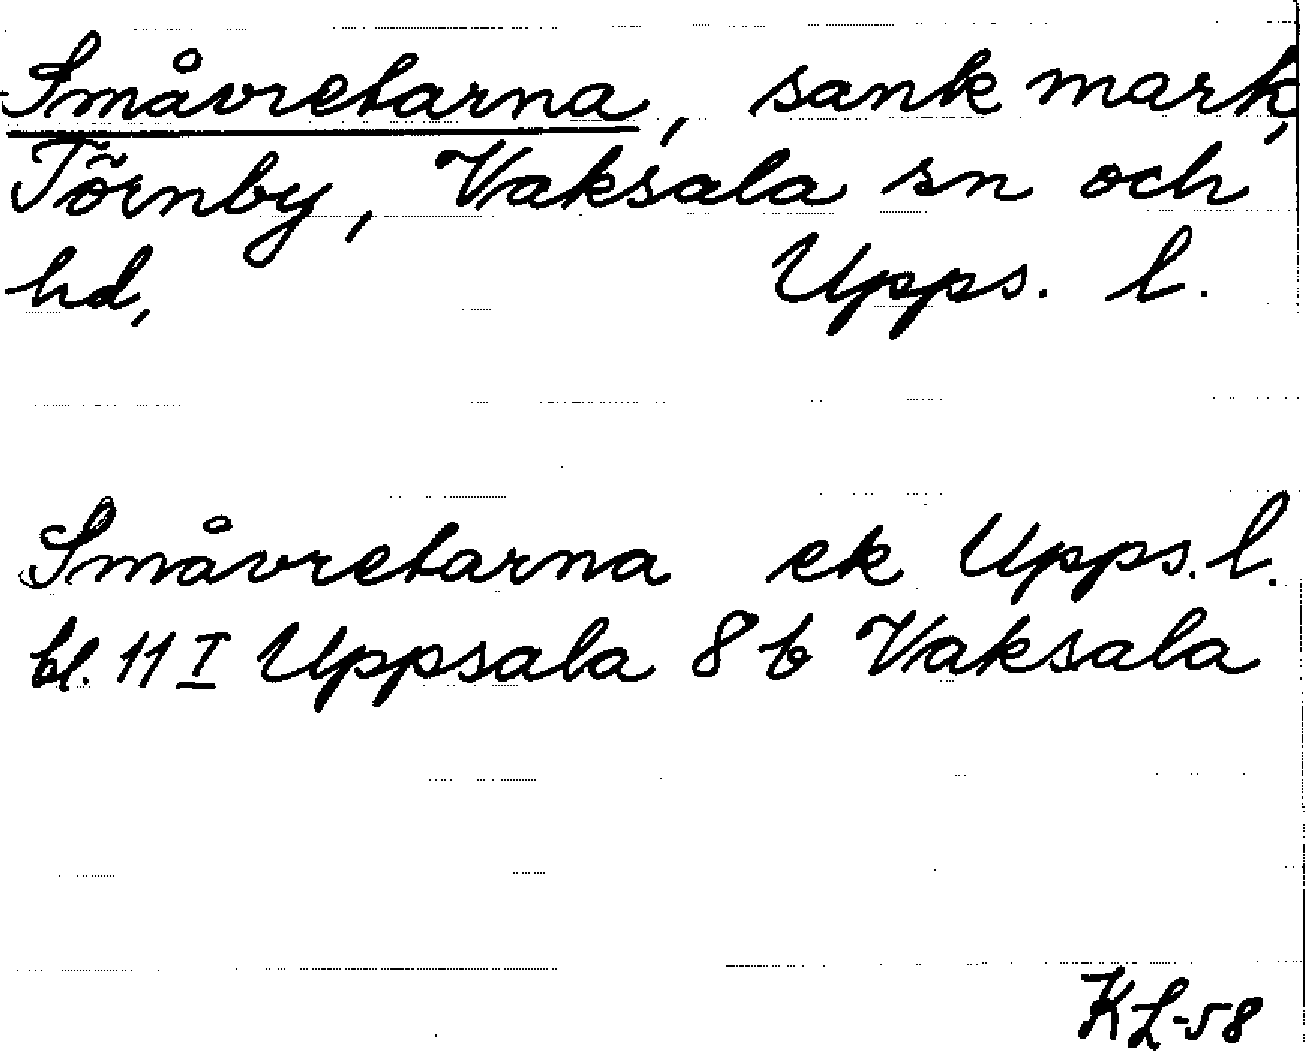 Småvretarna, sank mark,
Törnby, Vaksala sn och
hd, Upps. l.
Småvretarna ek Upps. l.
bl. 11 I Uppsala 8 b Vaksala
KL-58